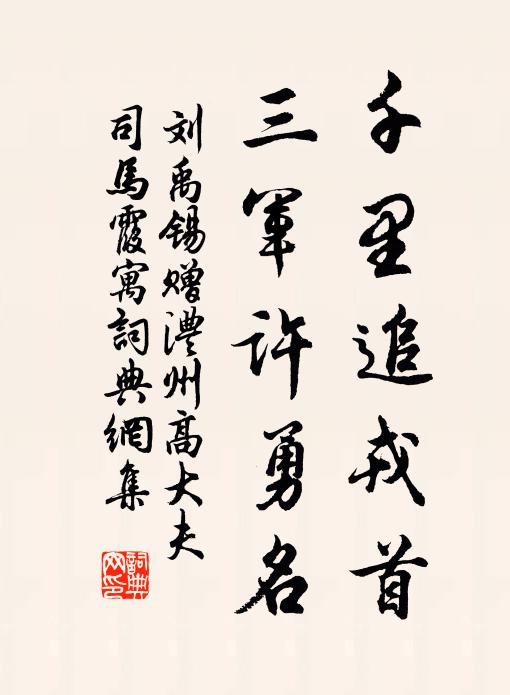 千里追戎首
三军许勇名
刘禹锡赠澧州高大夫
司馬霞寓詞典網集
詞典
网印